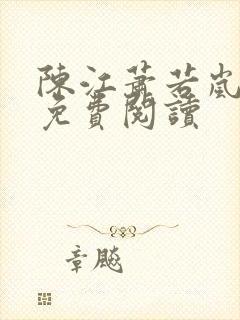 陳江蕭若嵐
免費閱讀
章飈